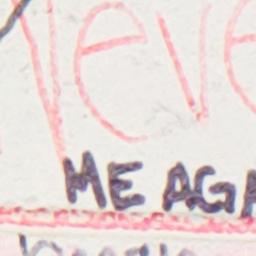 Neve
ME AGA